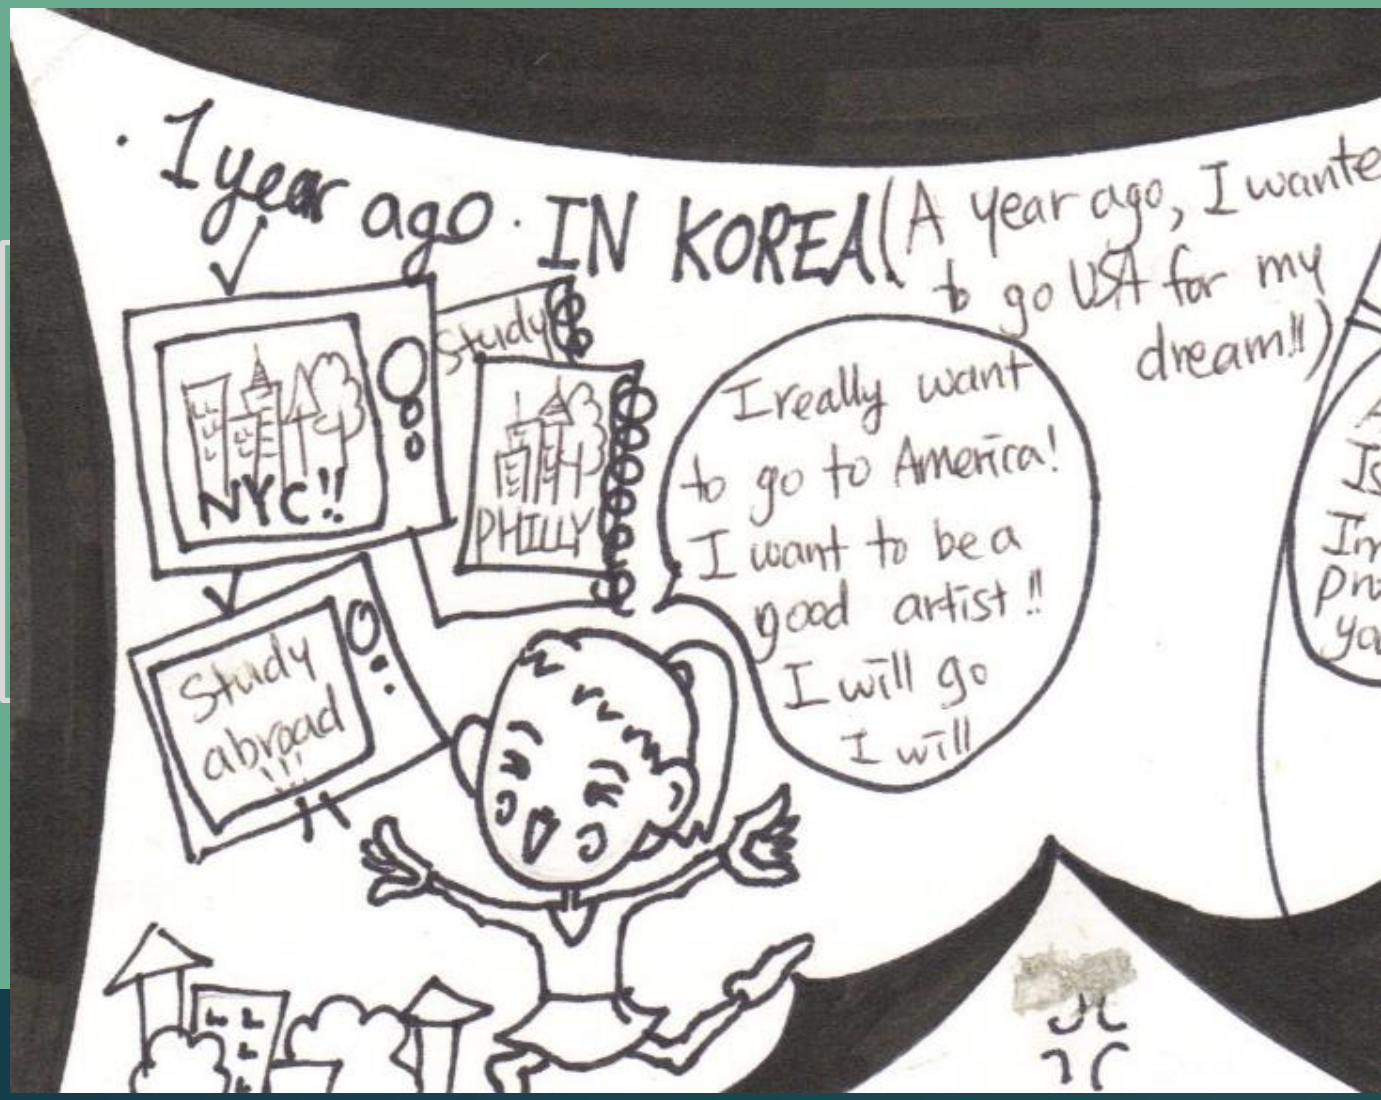 · 1 year ago · IN KOREA
(A year ago, I wante
to go USA for my
dream!!)
NYC!!
Study
PHILLY
Study
abroad
!!!
I really want
to go to America!
I want to be a
good artist!!
I will go
I will
A
Is
Im
pro
you